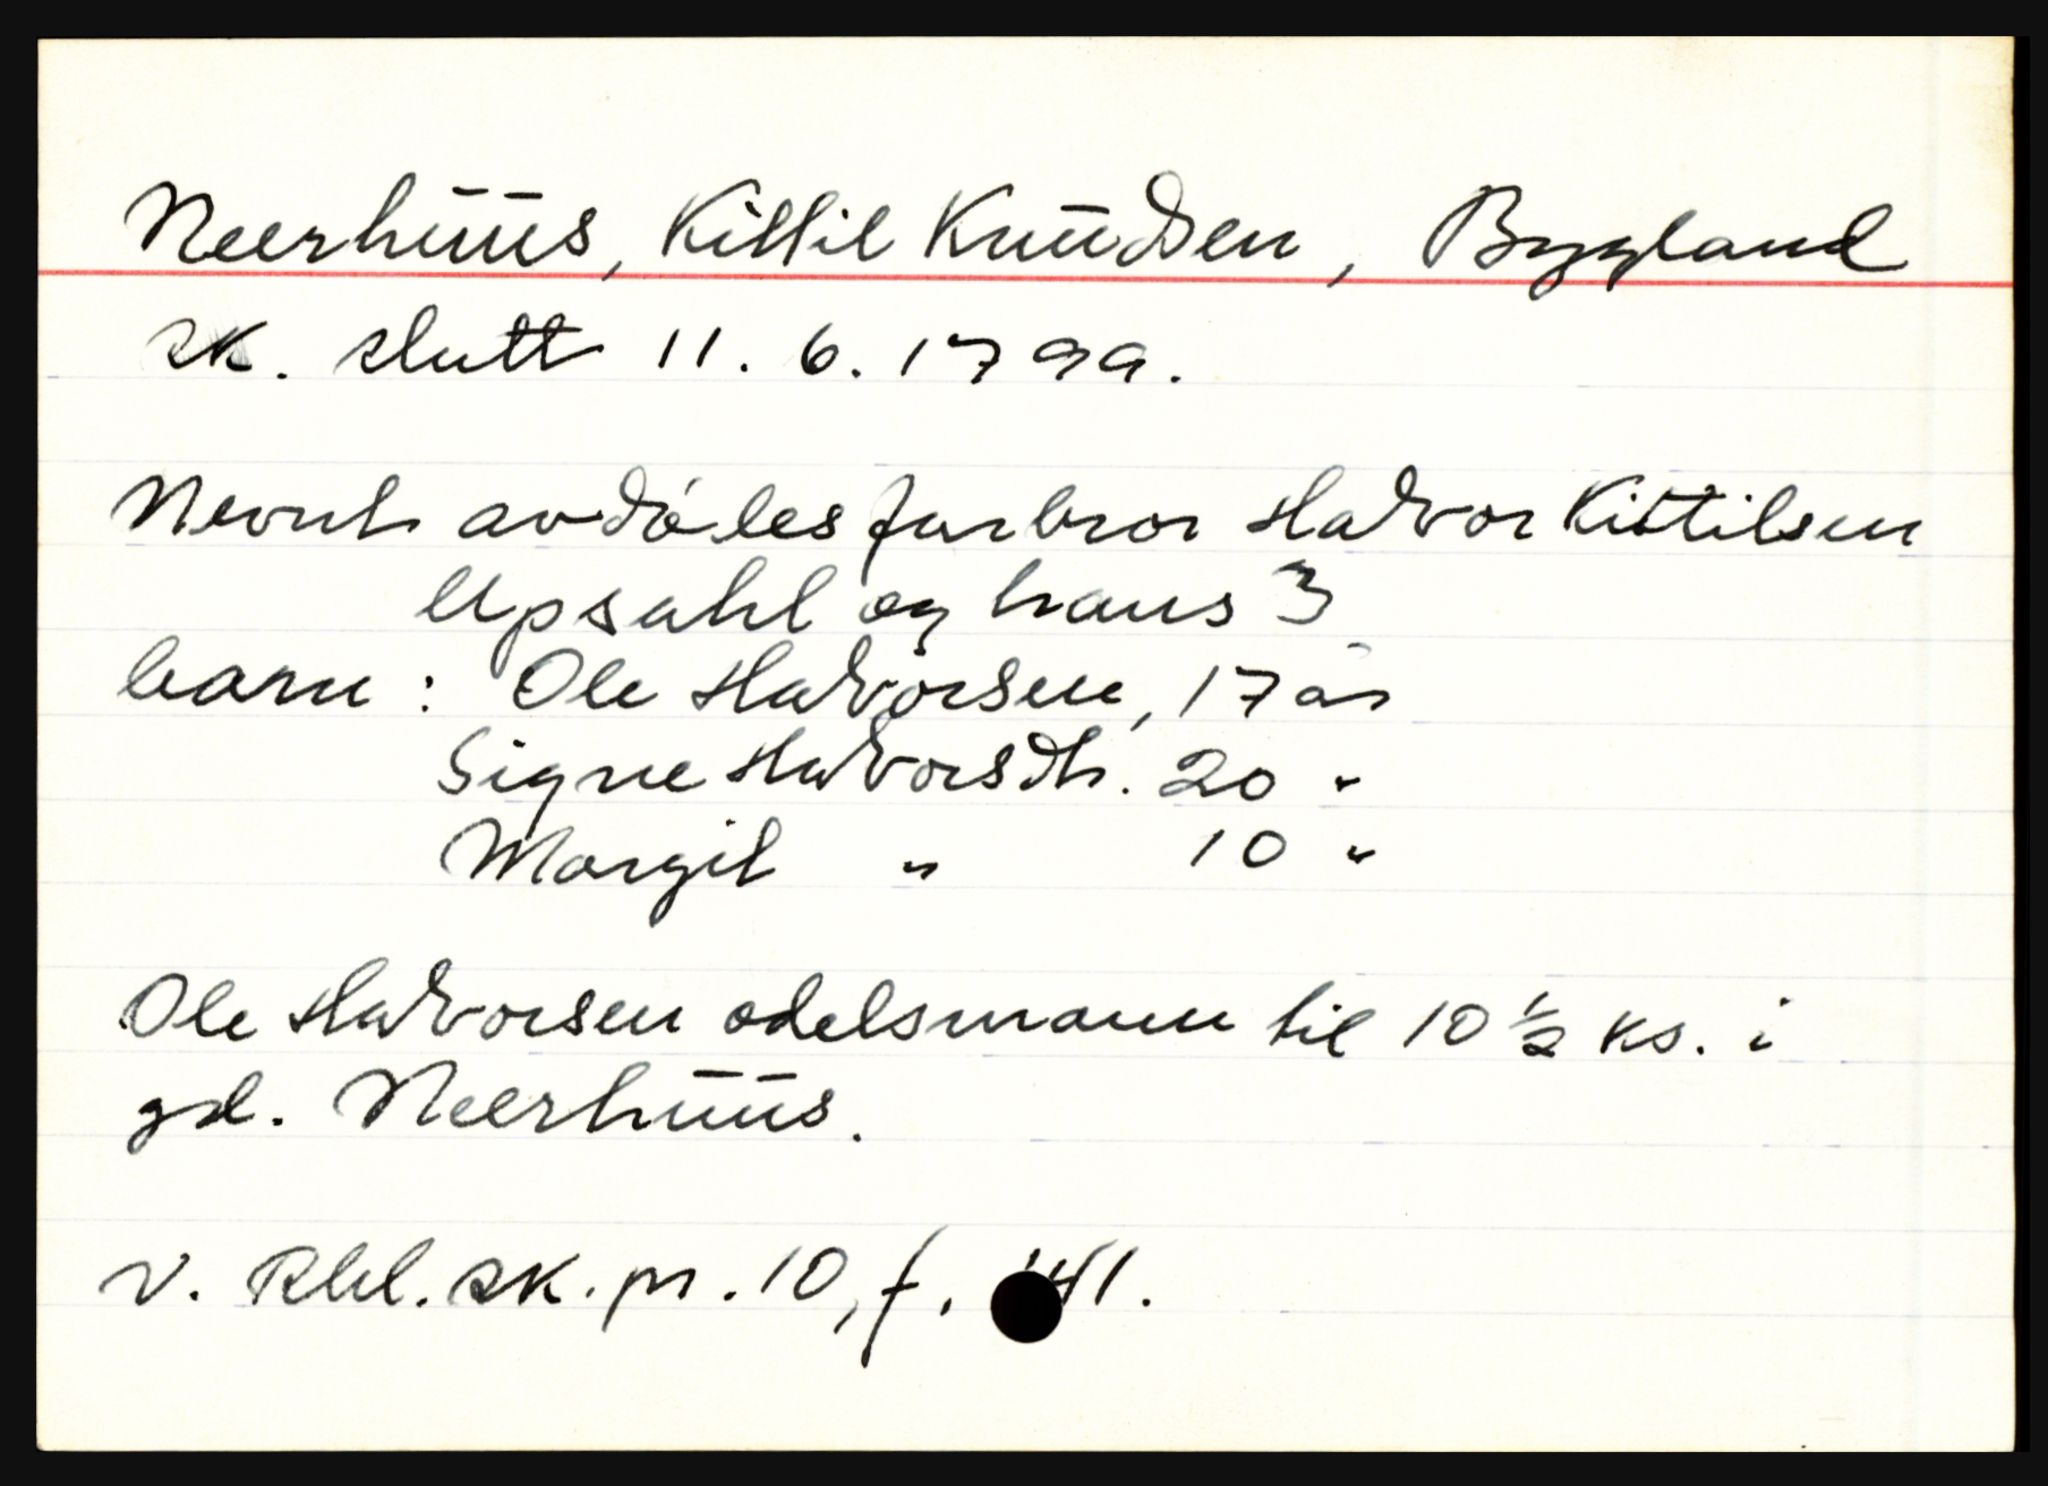 Neerhūūs, Kittil Knūdsen, Bygland
sk. slutt 11. 6. 1799.
Nevnt avdødes farbror Halvor Kittilsen
Upsahl og hans 3
barn: Ole Halvorsen, 17 år
Signe Halvorsdtr. 20 "
Margit " 10 "
Ole Halvorsen odelsmann til 10 ½ ks. i
gd. Neerhūūs.
v. Rbl. sk. pr. 10, f.